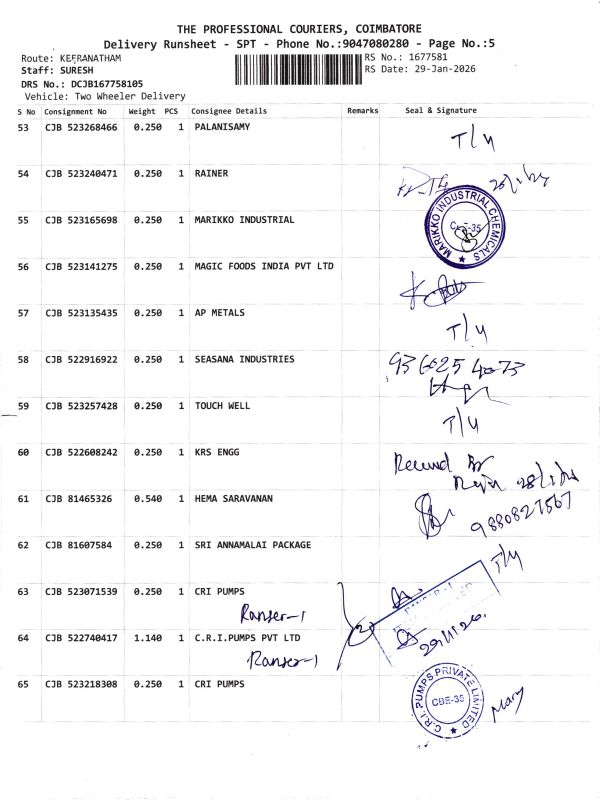 THE PROFESSIONAL COURIERS, COIMBATORE
Delivery Runsheet - SPT - Phone No.:9047080280 - Page No.:5
Route: KEERANATHAM
RS No.: 1677581
Staff: SURESH
RS Date: 29-Jan-2026
DRS No.: DCJB167758105
Vehicle: Two Wheeler Delivery
S No Consignment No Weight PCS Consignee Details Remarks Seal & Signature
53 CJB 523268466 0.250 1 PALANISAMY T/4
54 CJB 523240471 0.250 1 RAINER
55 CJB 523165698 0.250 1 MARIKKO INDUSTRIAL MARIKKO INDUSTRIAL CHEMICALS CBE-35
56 CJB 523141275 0.250 1 MAGIC FOODS INDIA PVT LTD
57 CJB 523135435 0.250 1 AP METALS T/4
58 CJB 522916922 0.250 1 SEASANA INDUSTRIES 936025 4073
59 CJB 523257428 0.250 1 TOUCH WELL T/4
60 CJB 522608242 0.250 1 KRS ENGG
61 CJB 81465326 0.540 1 HEMA SARAVANAN 9880827567
62 CJB 81607584 0.250 1 SRI ANNAMALAI PACKAGE T/4
63 CJB 523071539 0.250 1 CRI PUMPS
Ranser-1
64 CJB 522740417 1.140 1 C.R.I.PUMPS PVT LTD
Ranser-1
65 CJB 523218308 0.250 1 CRI PUMPS C.R.I. PUMPS PRIVATE LIMITED CBE-35 Mary